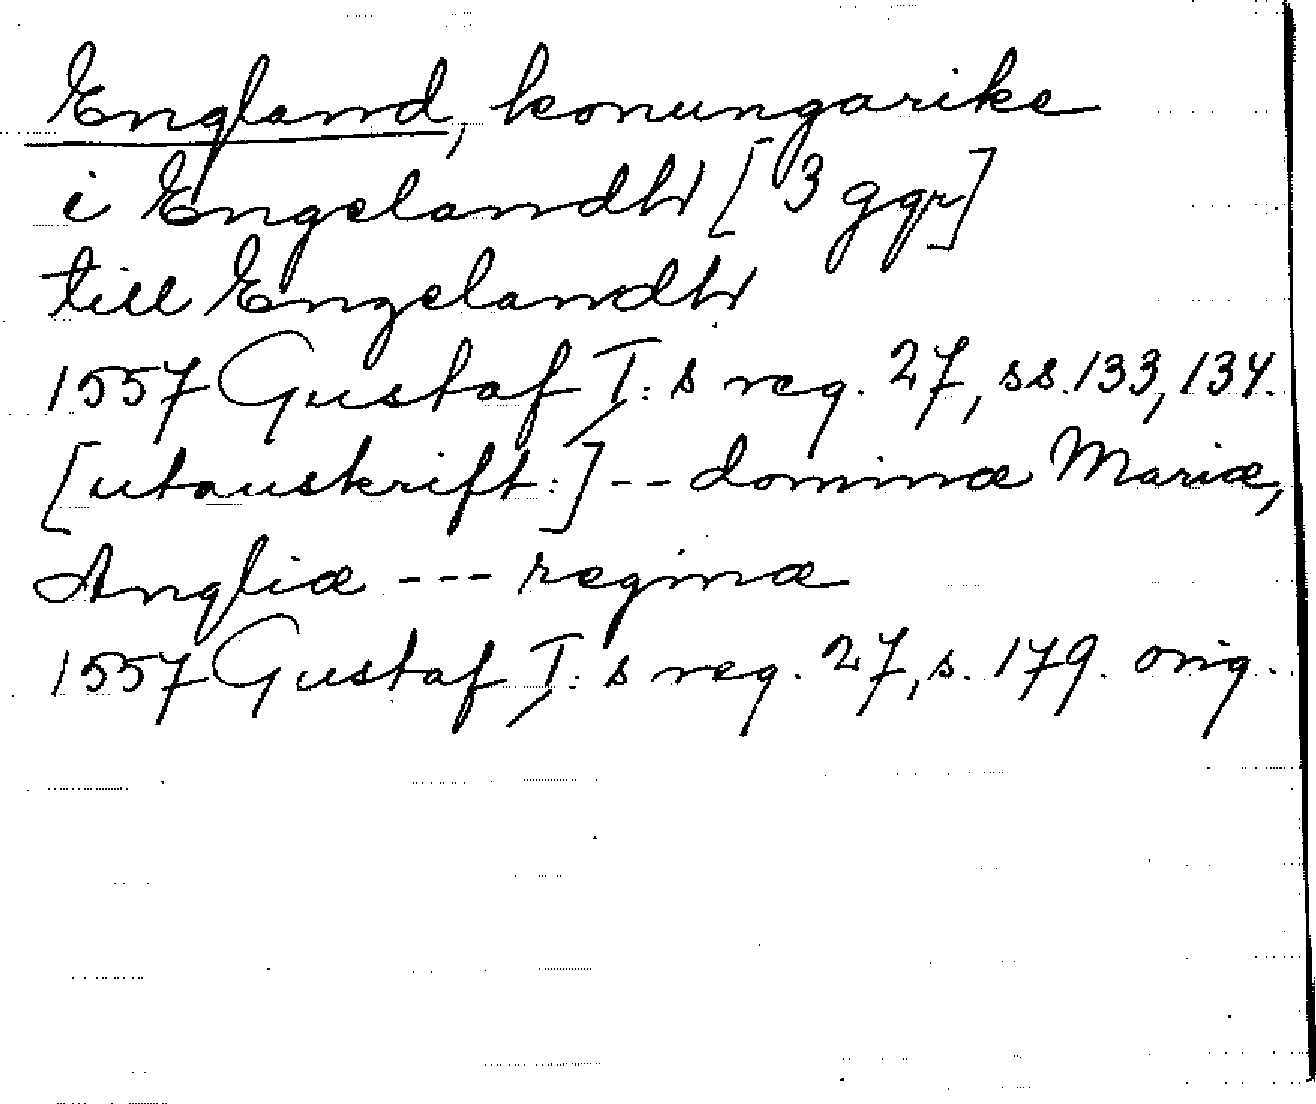 England, konungarike
i Engelandh [3 ggr]
till Engelandh
1557 Gustaf I:s reg. 27, ss. 133, 134.
[utanskrift:] -- dominæ Mariæ,
Angliæ --- reginæ
1557 Gustaf I:s reg. 27, s. 179. orig.